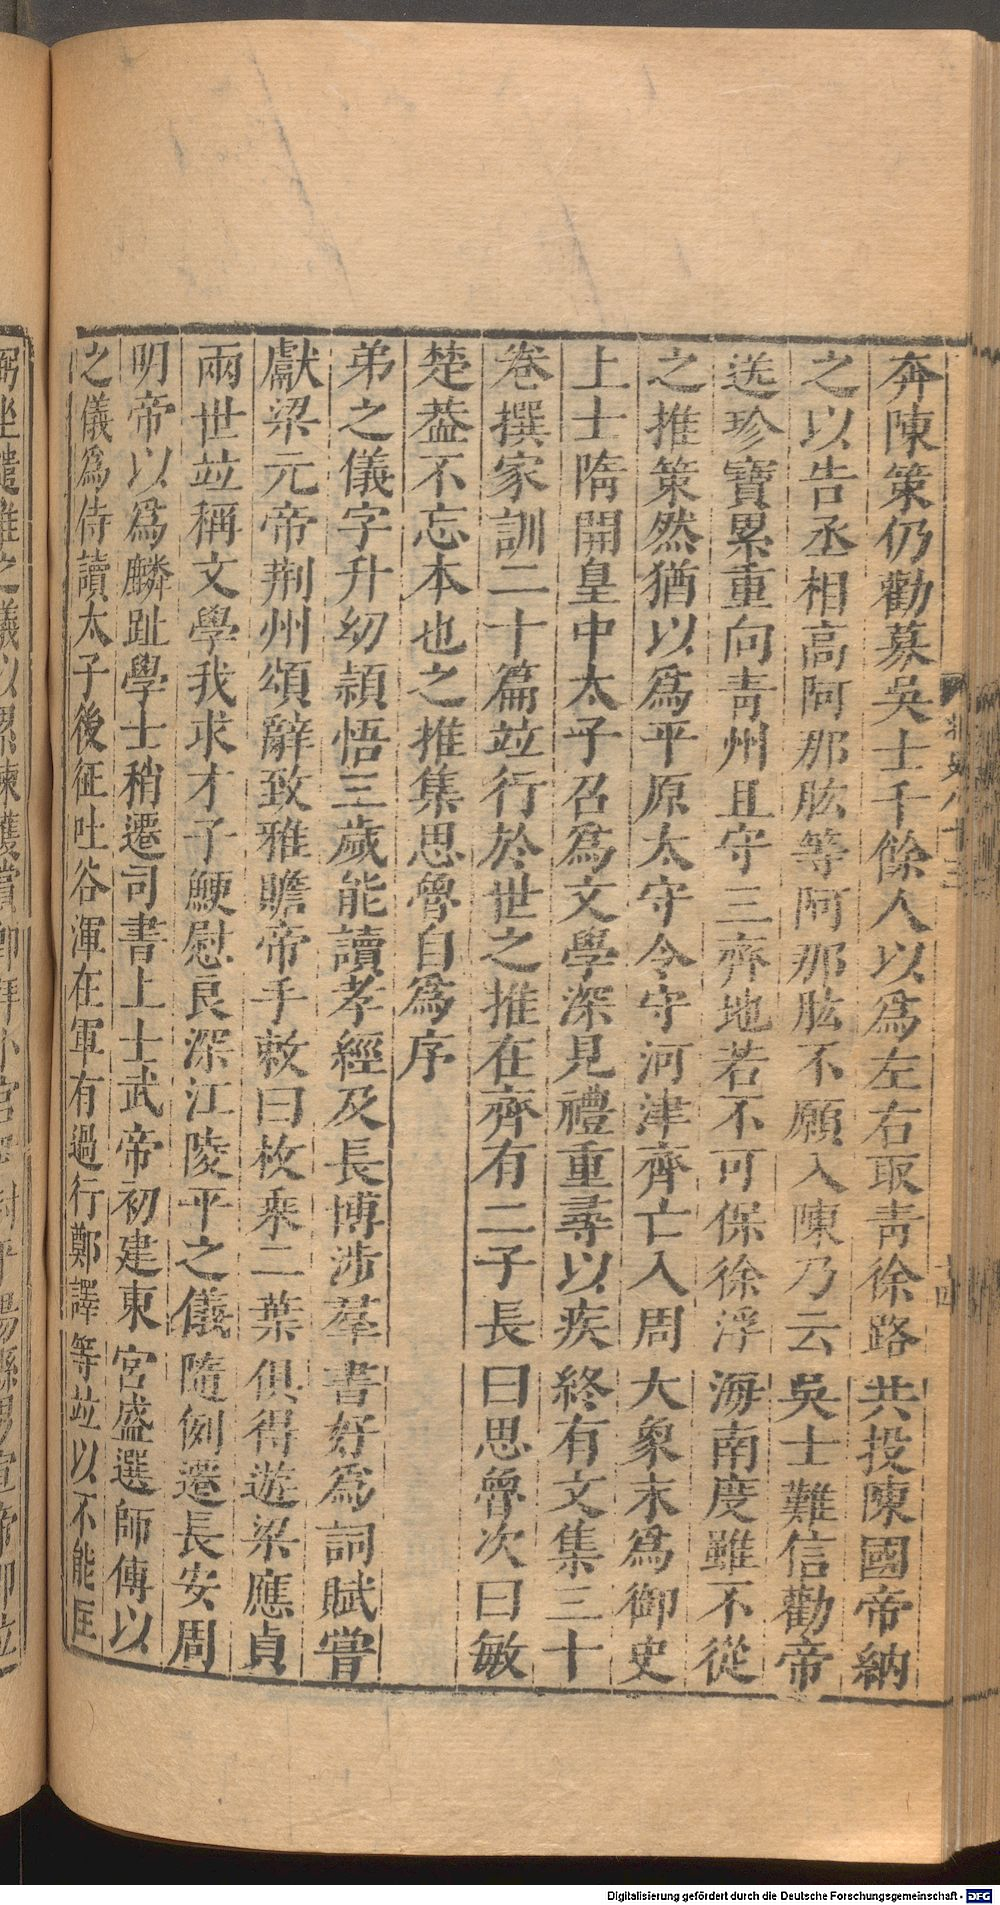 奔陳策仍勸募吳士千餘人以爲左右取靑徐路共投陳國帝納
之以告丞相高阿那肱等阿那肱不願入陳乃云吳士難信勸帝
送珍寶累重向靑州且守三齊地若不可保徐浮海南度雖不從
之推策然猶以爲平原太守令守河津齊亡入周大象末爲御史
上士隋開皇中太子召爲文學深見禮重尋以疾終有文集三十
卷撰家訓二十篇竝行於世之推在齊有二子長曰思魯次曰敏
楚葢不忘本也之推集思魯自爲序
弟之儀字升幼穎悟三歲能讀孝經及長博涉羣書好爲詞賦嘗
獻梁元帝荆州頌辭致雅贍帝手敕曰枚乘二葉俱得遊梁應貞
兩世竝稱文學我求才子鯁慰良深江陵平之儀隨例遷長安周
明帝以爲麟趾學士稍遷司書上士武帝初建東宮盛選師傅以
之儀爲侍讀太子後征吐谷渾在軍有過行鄭譯等竝以不能匡
弼坐譴唯之儀以累諫獲賞卽拜小宮尹封平陽縣男宣帝卽位
Digitalisierung gefördert durch die Deutsche Forschungsgemeinschaft - DFG